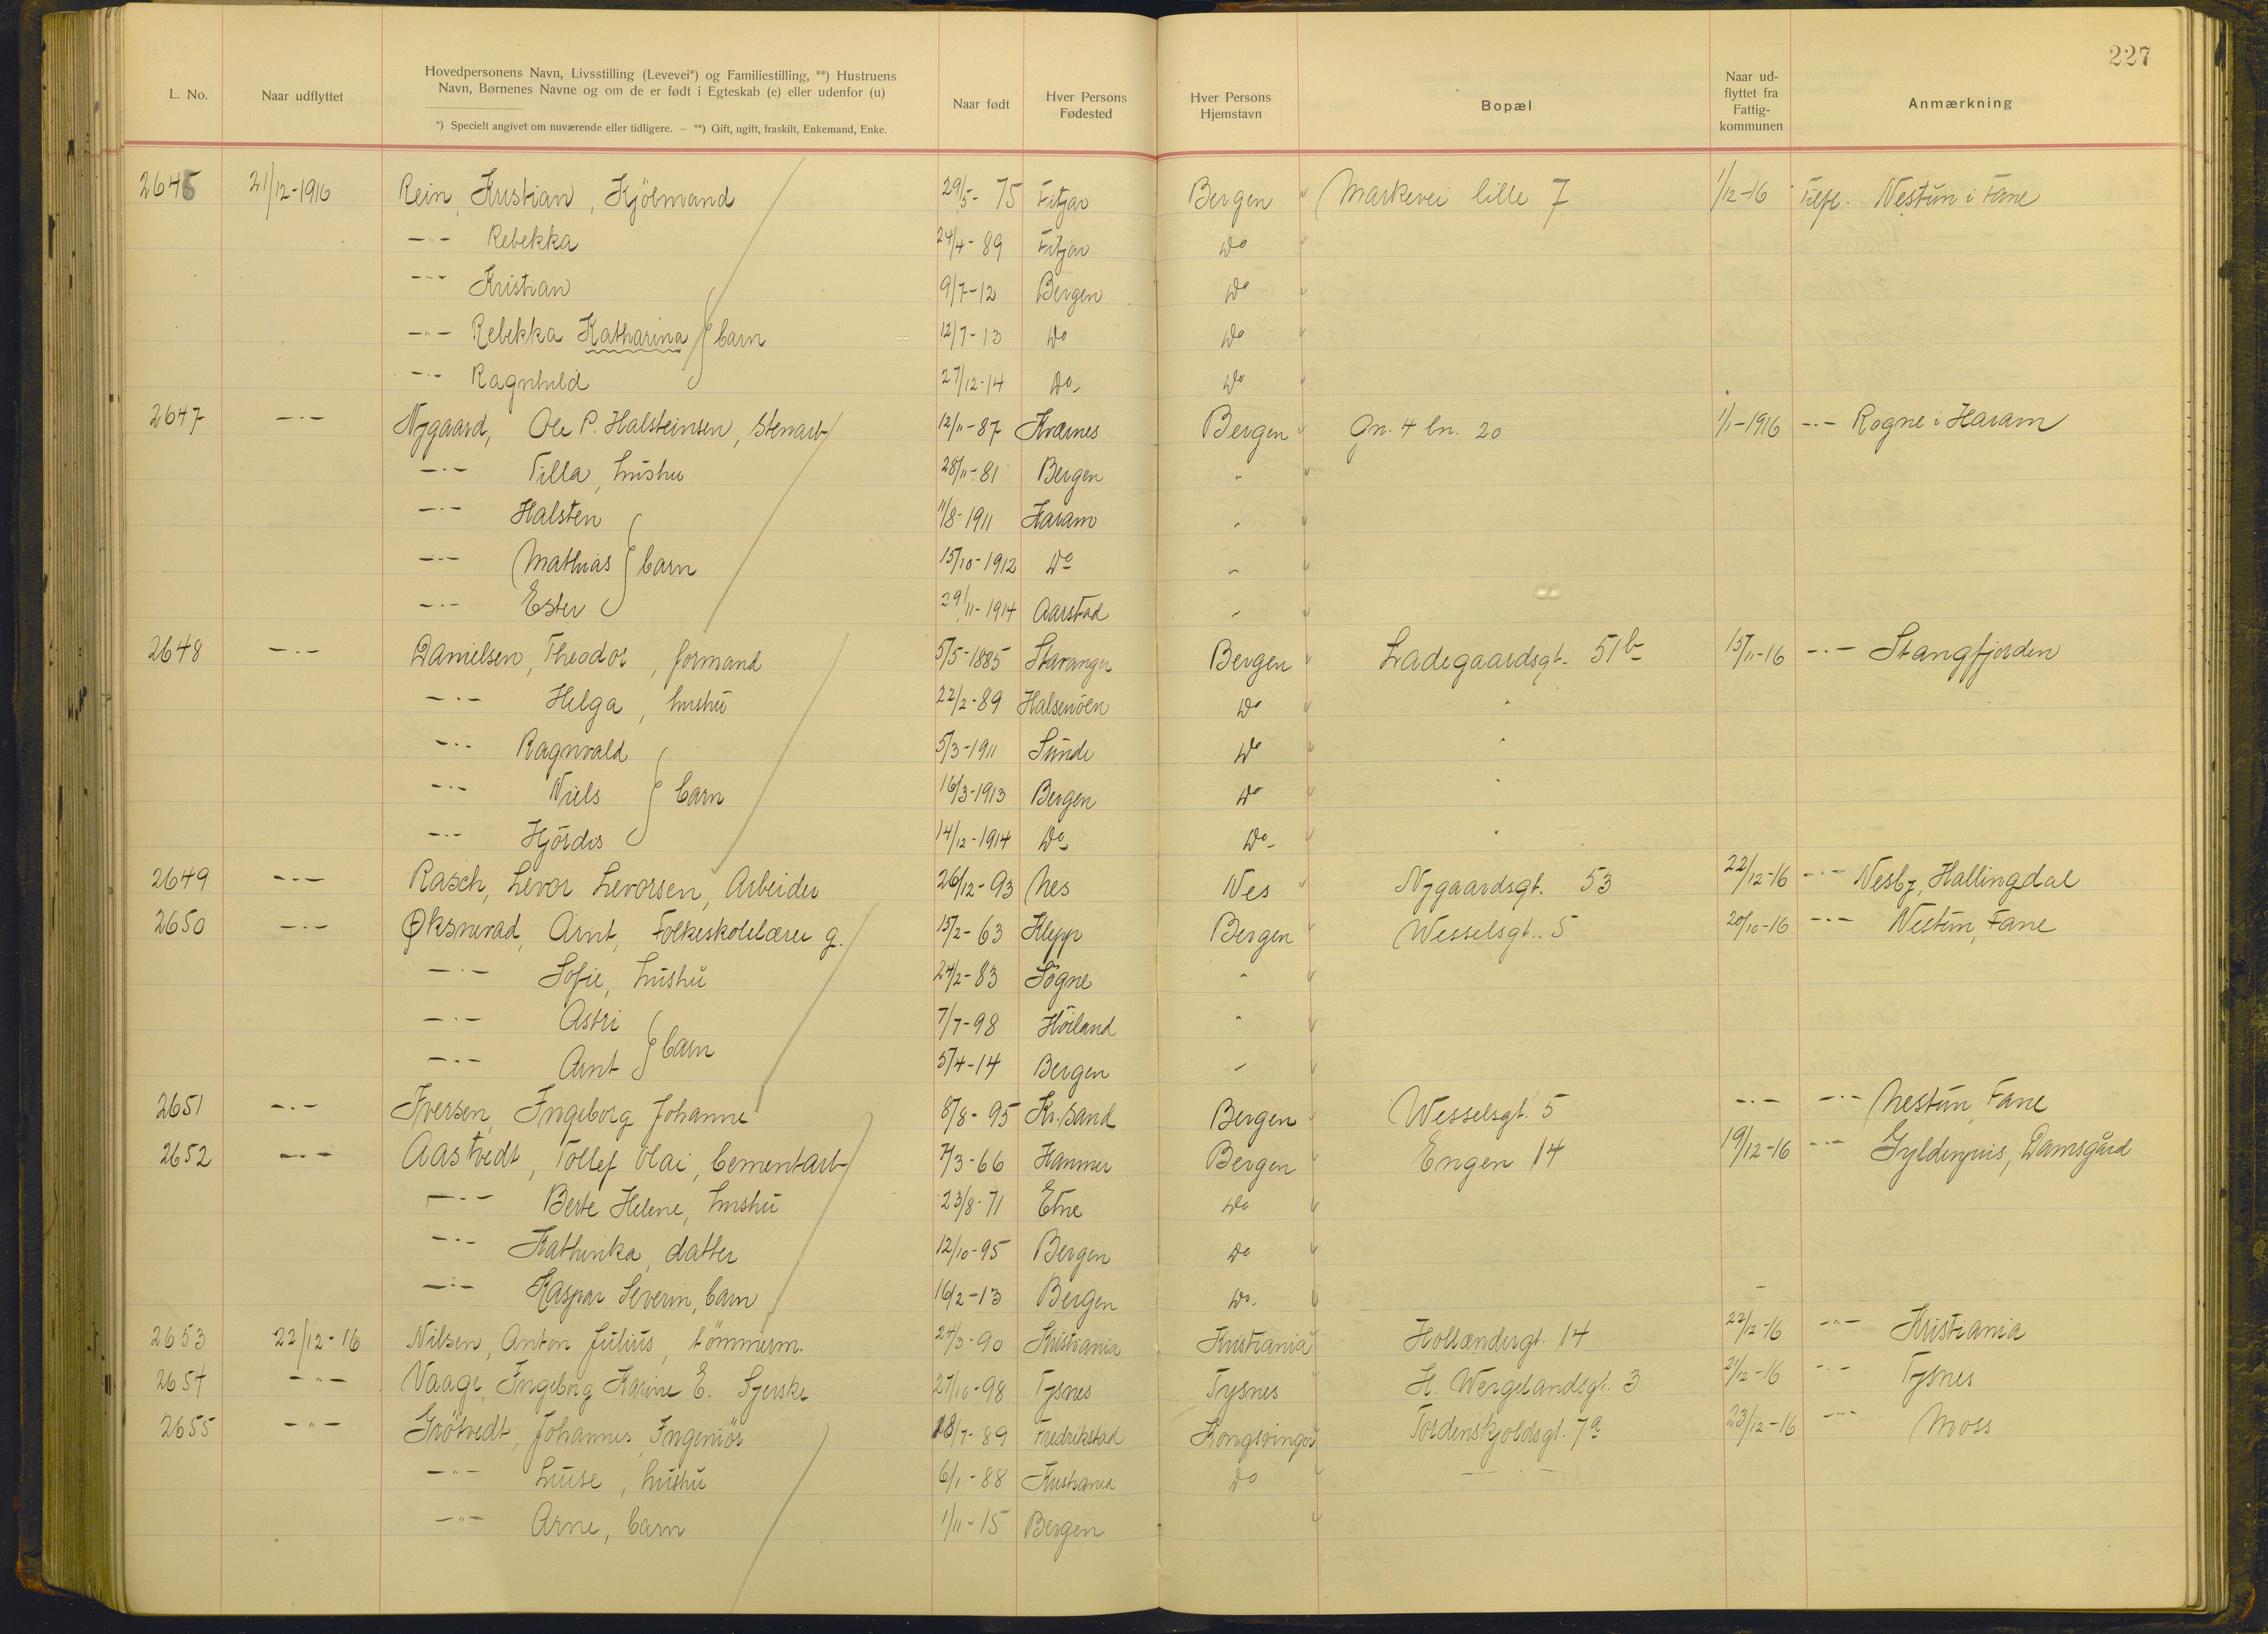 227
L. No. Naar udflyttet Hovedpersonens Navn, Livsstilling (Levevei*) og Familiestilling, **) Hustruens Navn, Børnenes Navne og om de er født i Egteskab (e) eller udenfor (u) Naar født Hver Persons Fødested Hver Persons Hjemstavn Bopæl Naar ud-flyttet fra Fattig-kommunen Anmærkning
*) Specielt angivet om nuværende eller tidligere. — **) Gift, ugift, fraskilt, Enkemand, Enke.
2646 21/12-1916 Rein, Kristian, Kjölmand 29/5-75 Fitjar Bergen Markevei lille 7 1/12-16 Nestun i Fane
-"- Rebekka 24/4-89 Fitjar Do
-"- Kristian 9/7-12 Bergen Do
-"- Rebekka Katharina } barn 12/7-13 Do Do
-"- Ragnhild 27/12-14 Do Do
2647 -"- Nygaard, Ole P. Halsteinsen, Stenarb 12/11-87 Kværnes Bergen Gn. 4 bn. 20 1/1-1916 -"- Rogne i Haram
-"- Villa, hustru 28/11-81 Bergen "
-"- Halsten 11/8-1911 Haram "
-"- Mathias } barn 15/10-1912 Do "
-"- Ester 29/11-1914 Aarstad "
2648 -"- Danielsen, Theodor, formand 5/5-1885 Stavanger Bergen Ladegaardsgt. 51b 15/11-16 -"- Stangfjorden
-"- Helga, hustru 22/2-89 Halsenöen Do "
-"- Ragnvald 5/3-1911 Sunde Do "
-"- Niels } barn 16/3-1913 Bergen Do "
-"- Hjördis 14/12-1914 Do Do "
2649 -"- Rasch, Levor Levorsen, Arbeider 26/12-93 Nes Nes Nygaardsgt. 53 22/12-16 -"- Nesby, Hallingdal
2650 -"- Øksnevad, Arnt, Folkeskolelærer g. 15/2-63 Klepp Bergen Wesselsgt. 5 20/10-16 -"- Nestun, Fane
-"- Sofie, hustru 24/2-83 Sögne "
-"- Astri } barn 7/7-98 Höiland "
-"- Arnt 5/4-14 Bergen "
2651 -"- Iversen, Ingeborg Johanne 8/8-95 Kr.sand Bergen Wesselsgt. 5 -"- -"- Nestun, Fane
2652 -"- Aastvedt, Tollef Olai, Cementarb 7/3-66 Hammer Bergen Engen 14 19/12-16 -"- Gyldenpris, Damsgård
-"- Berte Helene, hustru 23/8-71 Etne Do
-"- Kathinka, datter 12/10-95 Bergen Do
-"- Kaspar Severin, barn 16/2-13 Bergen Do -
2653 22/12-16 Nilsen, Anton Julius, tömmerm. 24/3-90 Kristiania Kristiania Hollændergt. 14 22/12-16 -"- Kristiania
2654 -"- Vaage, Ingeborg Karine E. Syerske 27/10-98 Tysnes Tysnes H. Wergelandsgt. 3 21/12-16 -"- Tysnes
2655 -"- Grötvedt, Johannes, Ingeniör 18/7-89 Fredrikstad Kongsvinger Tordenskjoldsgt. 7a 23/12-16 -"- Moss
-"- Luise, hustru 6/1-88 Kristiania Do
-"- Arne, barn 1/11-15 Bergen